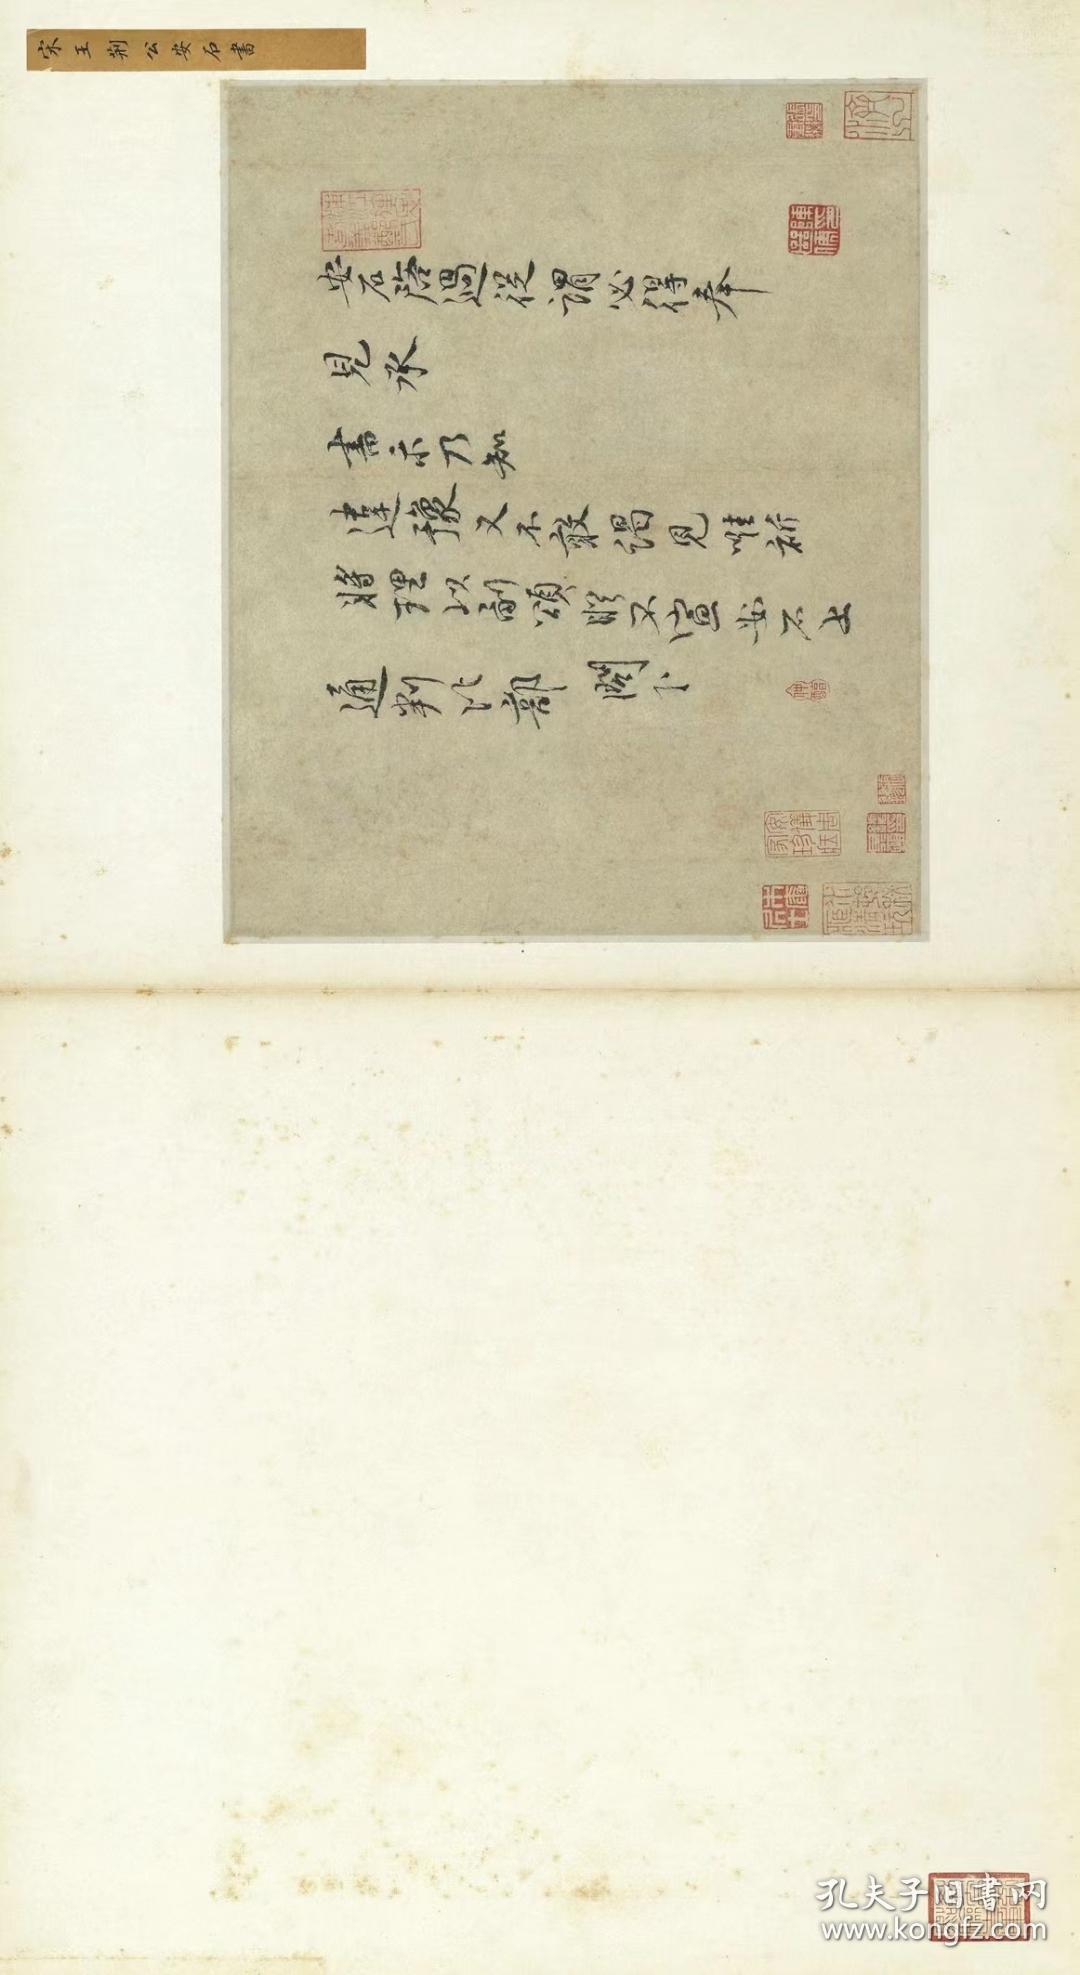 宋王荆公安石書
安石啓過從謂必得奉
見承
書示乃知
違豫又不敢謁見唯祈
將理以副頌詠不宣安石上
通判比部 閤下
孔夫子旧书网
www.kongfz.com